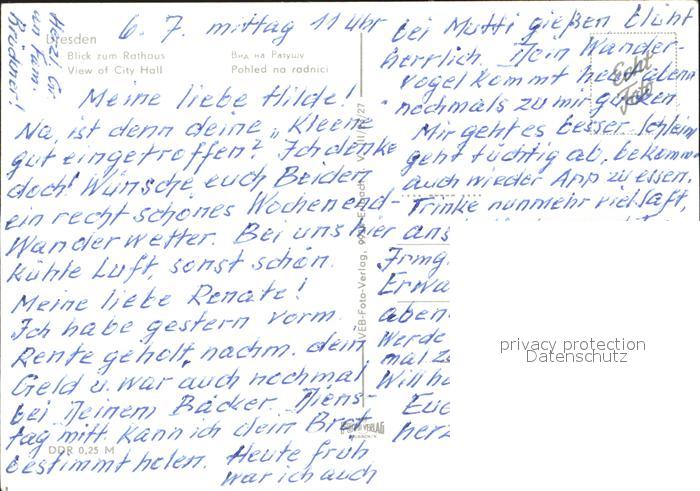 6. 7. mittag 11 Uhr
Herzl. Gr.
an Fam.
Brückner!
Dresden
Blick zum Rathaus
View of City Hall
Вид на Ратушу
Pohled na radnici
Meine liebe Hilde!
Na, ist denn deine „Kleene
gut eingetroffen? Ich denke
doch! Wünsche euch Beiden
ein recht schönes Wochenend-
Wanderwetter. Bei uns hier
kühle Luft, sonst schön.
Meine liebe Renate!
Ich habe gestern vorm.
Rente geholt, nachm. dein
Geld u. war auch nochmal
bei Deinem Bäcker. Diens-
tag mitt. kann ich dein Brot
bestimmt holen. Heute früh
war ich auch
DDR 0,25 M
VEB-Foto-Verlag,
bei Mutti gießen blüht
herrlich. Mein Wander-
vogel kommt heut abend
nochmals zu mir gucken
Mir geht es besser. Schleim
geht tüchtig ab, bekomm
auch wieder App zu essen.
Trinke nunmehr viel Saft,
ans
Irmg.
Erwa
aben
Werde
mal z
Will ha
Euc
herz
Echt
Foto
privacy protection
Datenschutz